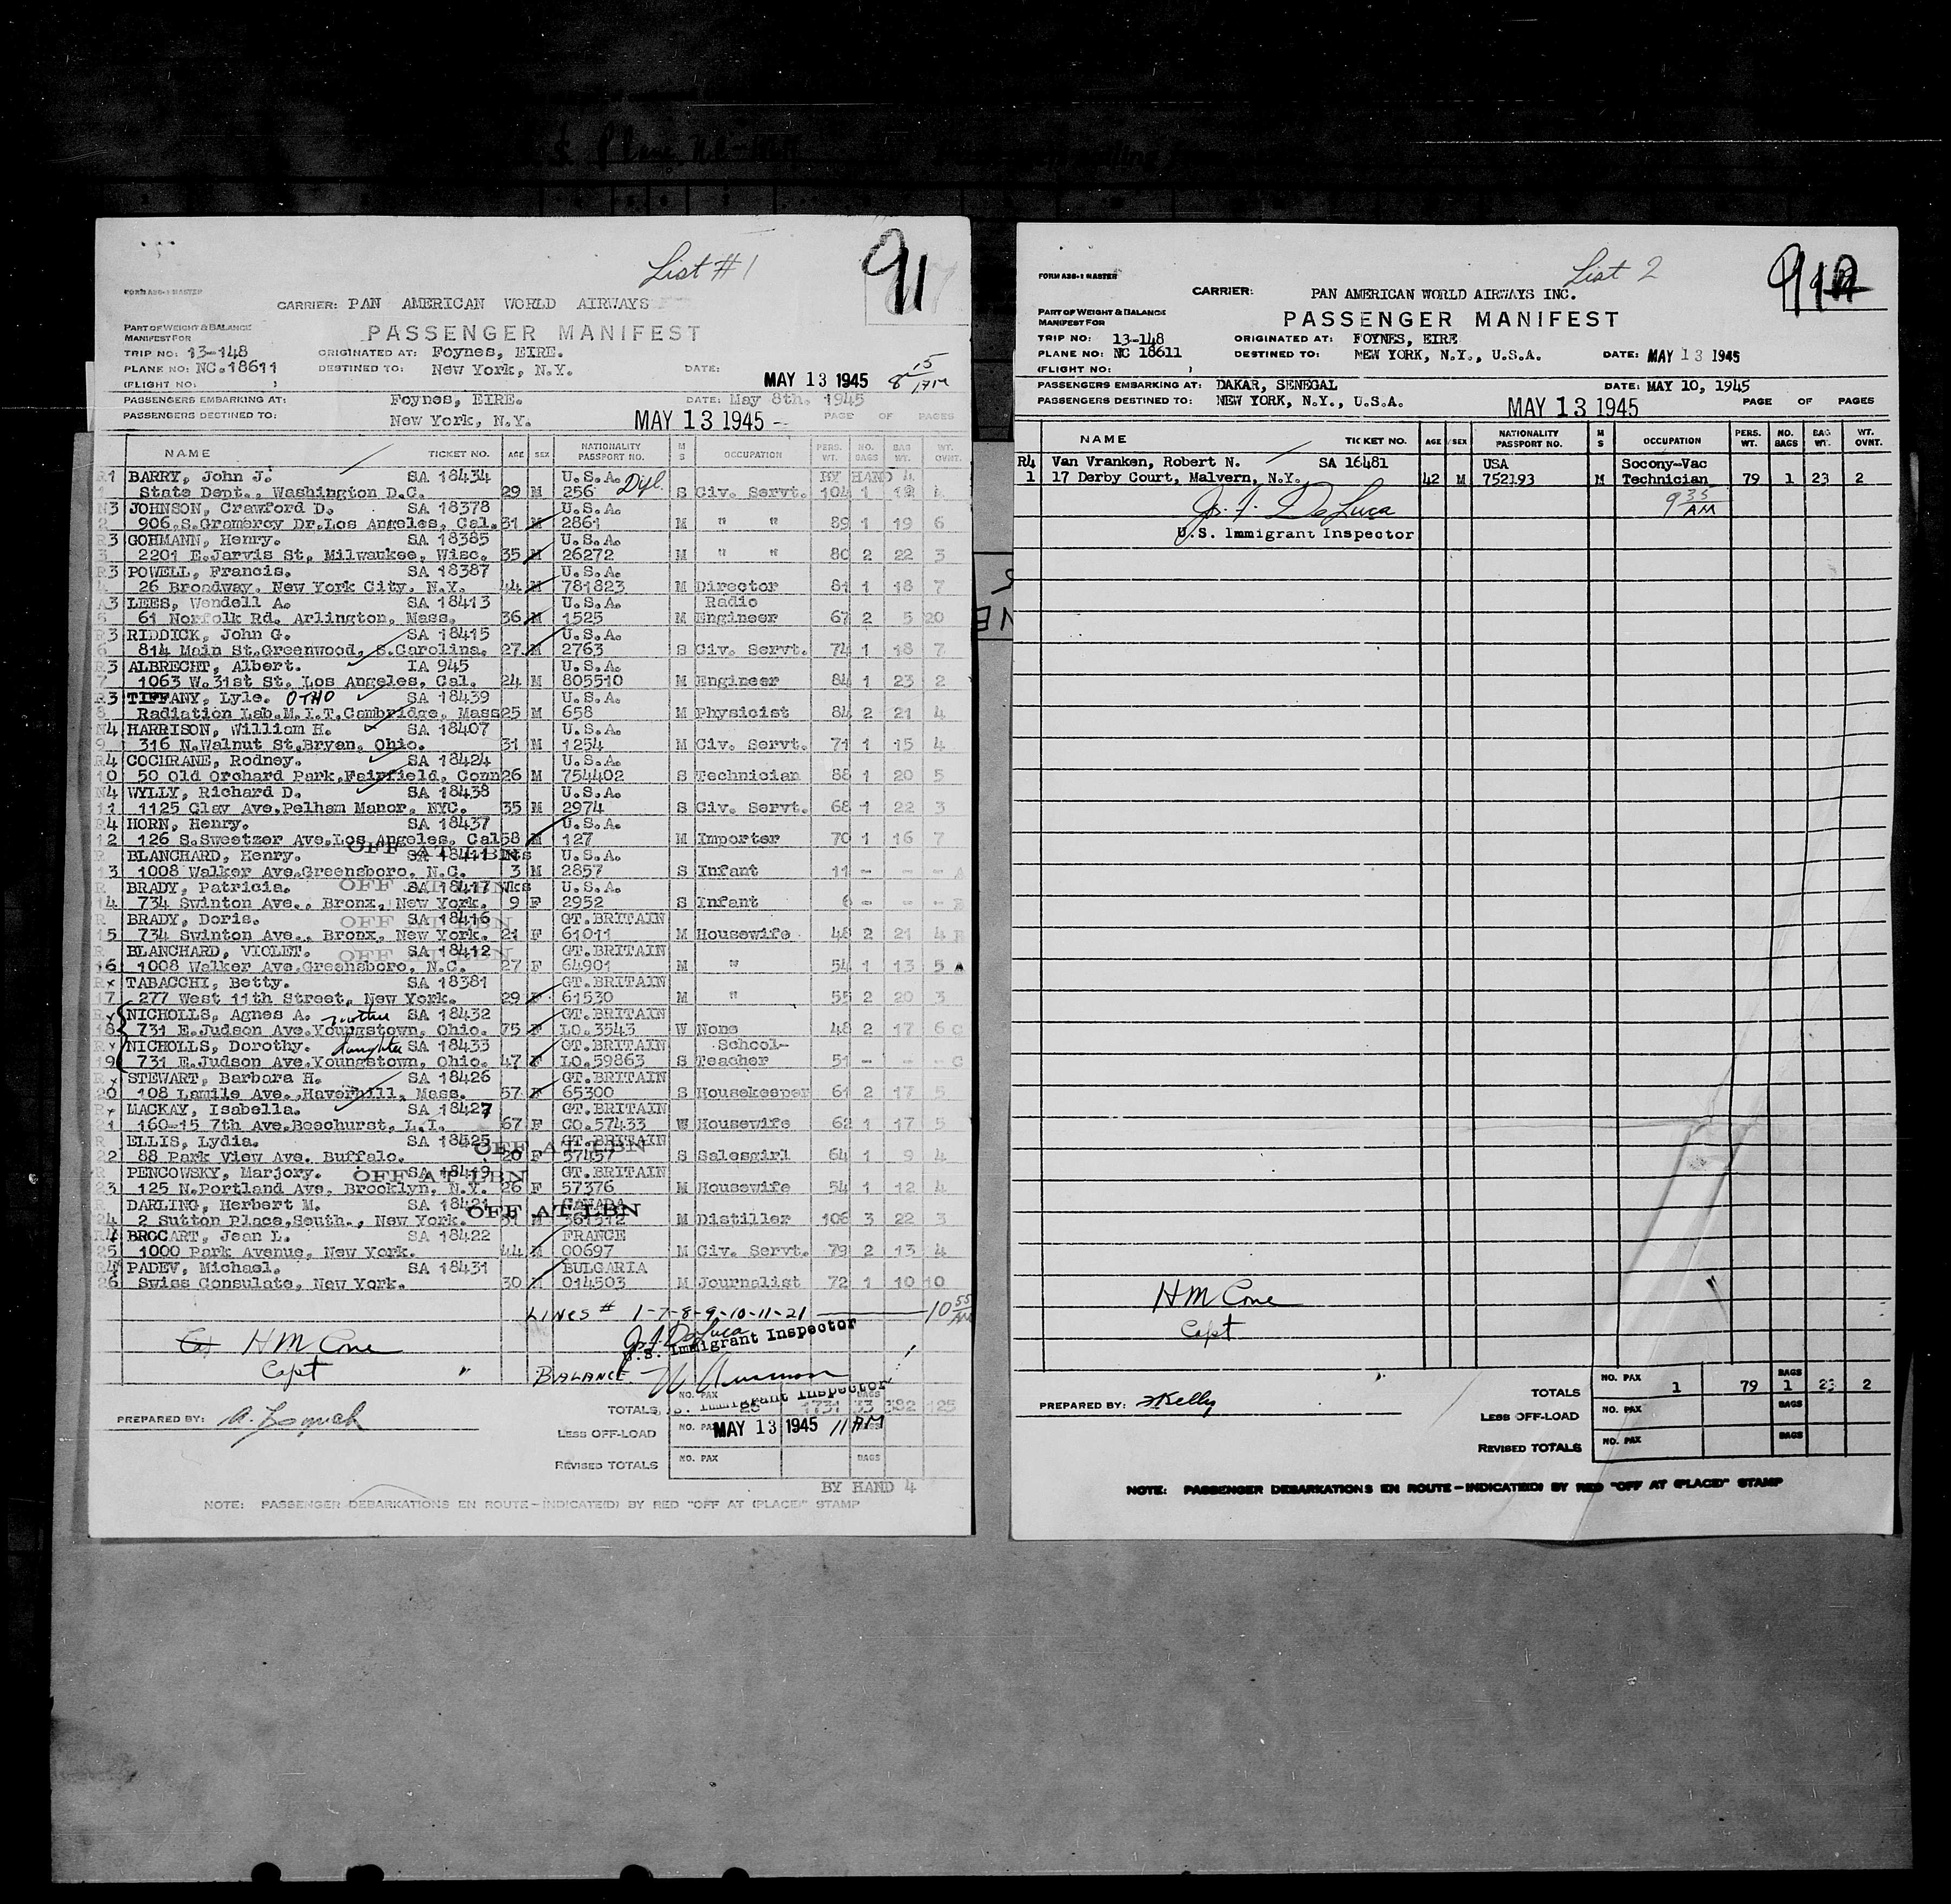 List #1
91
FORM A36-1 MASTER
CARRIER: PAN AMERICAN WORLD AIRWAYS
PART OF WEIGHT & BALANCE
MANIFEST FOR
PASSENGER MANIFEST
TRIP NO: 13-148 ORIGINATED AT: Foynes, EIRE.
PLANE NO: NC.18611 DESTINED TO: New York, N.Y. DATE: MAY 13 1945
(FLIGHT NO: )
PASSENGERS EMBARKING AT: Foynes, EIRE. DATE: May 8th. 1945
PASSENGERS DESTINED TO: New York, N.Y. MAY 13 1945 PAGE OF PAGES
NAME TICKET NO. AGE SEX NATIONALITY PASSPORT NO. M S OCCUPATION PERS. WT. NO. BAGS BAG WT. WT. OVNT.
R1 BARRY, John J. SA 18434 U.S.A. Dipl. BY HAND 4
1 State Dept., Washington D.C. 29 M 256 S Civ. Servt. 104 1 18 4
N3 JOHNSON, Crawford D. SA 18378 U.S.A.
2 906.S.Gramercy Dr.Los Angeles, Cal. 31 M 2861 M " " 89 1 19 6
R3 GOHMANN, Henry. SA 18385 U.S.A.
3 2201 E.Jarvis St, Milwaukee, Wisc. 35 M 26272 M " " 80 2 22 3
R3 POWELL, Francis. SA 18387 U.S.A.
4 26 Broadway. New York City. N.Y. 44 M 781823 M Director 81 1 18 7
A3 LEES, Wendell A. SA 18413 U.S.A. Radio
5 61 Norfolk Rd. Arlington, Mass. 36 M 1525 M Engineer 67 2 5 20
R3 RIDDICK, John G. SA 18415 U.S.A.
6 814 Main St.Greenwood, S.Carolina. 27 M 2763 S Civ. Servt. 74 1 18 7
R3 ALBRECHT, Albert. IA 945 U.S.A.
7 1063 W.31st St. Los Angeles, Cal. 24 M 805510 M Engineer 84 1 23 2
R3 TIFFANY, Lyle. OTHO SA 18439 U.S.A.
8 Radiation Lab.M.I.T.Cambridge, Mass 25 M 658 M Physicist 84 2 21 4
N4 HARRISON, William H. SA 18407 U.S.A.
9 316 N.Walnut St.Bryan, Ohio. 31 M 1254 M Civ. Servt. 71 1 15 4
R4 COCHRANE, Rodney. SA 18424 U.S.A.
10 50 Old Orchard Park,Fairfield, Conn 26 M 754402 S Technician 88 1 20 5
N4 WYLLY, Richard D. SA 18438 U.S.A.
11 1125 Clay Ave.Pelham Manor, NYC. 35 M 2974 S Civ. Servt. 68 1 22 3
R4 HORN, Henry. SA 18437 U.S.A.
12 126 S.Sweetzer Ave.Los Angeles, Cal 58 M 127 M Importer 70 1 16 7
R BLANCHARD, Henry. SA 18411 OFF AT LBN U.S.A.
13 1008 Walker Ave.Greensboro, N.C. 3 M 2857 S Infant 11 - - - A
R BRADY, Patricia. OFF AT LBN SA 18417 Wks U.S.A.
14 734 Swinton Ave., Bronx, New York. 9 F 2952 S Infant 6 - - - B
R BRADY, Doris. OFF AT LBN SA 18416 GT.BRITAIN
15 734 Swinton Ave., Bronx, New York. 21 F 61011 M Housewife 48 2 21 4 B
R BLANCHARD, VIOLET. OFF AT LBN SA 18412 GT.BRITAIN
16 1008 Walker Ave.Greensboro, N.C. 27 F 64901 M " 54 1 13 5 A
Rx TABACCHI, Betty. SA 18381 GT.BRITAIN
17 277 West 11th Street, New York. 29 F 61530 M " 55 2 20 3
Rx NICHOLLS, Agnes A. mother SA 18432 GT.BRITAIN
18 731 E.Judson Ave.Youngstown, Ohio. 75 F LO.3543 W None 48 2 17 6 C
Rx NICHOLLS, Dorothy. daughter SA 18433 GT.BRITAIN School-
19 731 E.Judson Ave.Youngstown, Ohio. 47 F LO.59863 S Teacher 51 - - - C
Rx STEWART, Barbara H. SA 18426 GT.BRITAIN
20 108 Lamile Ave.,Haverhill, Mass. 57 F 65300 S Housekeeper 61 2 17 5
Rx MACKAY, Isabella. SA 18427 GT.BRITAIN
21 160-15 7th Ave.Beechurst, L.I. 67 F CO.57433 W Housewife 62 1 17 5
R ELLIS, Lydia. SA 18425 OFF AT LBN GT.BRITAIN
22 88 Park View Ave. Buffalo. 20 F 57457 S Salesgirl 64 1 9 4
R PENCOWSKY, Marjory. OFF AT LBN SA 18419 GT.BRITAIN
23 125 N.Portland Ave, Brooklyn, N.Y. 26 F 57376 M Housewife 54 1 12 4
R DARLING, Herbert M. SA 18421 OFF AT LBN CANADA
24 2 Sutton Place,South., New York. 51 M 361512 M Distiller 106 3 22 3
R4 BROCART, Jean L. SA 18422 FRANCE
25 1000 Park Avenue, New York. 44 M 00697 M Civ. Servt. 79 2 13 4
R4 PADEV, Michael. SA 18431 BULGARIA
26 Swiss Consulate, New York. 30 M 014503 M Journalist 72 1 10 10
LINES # 1-7-8-9-10-11-21 10 55 AM
Jos. J. DeLuca
U.S. Immigrant Inspector
H M Cone
Capt
BALANCE
U.S. Immigrant Inspector
TOTALS NO. PAX 26 1731 BAGS 33 382 125
PREPARED BY:
LESS OFF-LOAD NO. PAX MAY 13 1945 11 AM
REVISED TOTALS NO. PAX BAGS
BY HAND 4
NOTE: PASSENGER DEBARKATIONS EN ROUTE-INDICATE(D) BY RED "OFF AT (PLACE)" STAMP
List 2
FORM A36-1 MASTER
CARRIER: PAN AMERICAN WORLD AIRWAYS INC.
PART OF WEIGHT & BALANCE
MANIFEST FOR
PASSENGER MANIFEST
TRIP NO: 13-148 ORIGINATED AT: FOYNES, EIRE
PLANE NO: NC 18611 DESTINED TO: NEW YORK, N.Y., U.S.A. DATE: MAY 13 1945
(FLIGHT NO: )
PASSENGERS EMBARKING AT: DAKAR, SENEGAL DATE: MAY 10, 1945
PASSENGERS DESTINED TO: NEW YORK, N.Y., U.S.A. MAY 13 1945 PAGE OF PAGES
NAME TICKET NO. AGE SEX NATIONALITY PASSPORT NO. M S OCCUPATION PERS. WT. NO. BAGS BAG WT. WT. OVNT.
R4 Van Vranken, Robert N. SA 16481 USA Socony-Vac
1 17 Derby Court, Malvern, N.Y. 42 M 752193 M Technician 79 1 23 2
Jos. J. DeLuca 9 35 AM
U.S. Immigrant Inspector
H M Cone
Capt
TOTALS NO. PAX 1 79 BAGS 1 23 2
PREPARED BY: Kelly
LESS OFF-LOAD NO. PAX BAGS
REVISED TOTALS NO. PAX BAGS
NOTE: PASSENGER DEBARKATIONS EN ROUTE-INDICATE(D) BY RED "OFF AT (PLACE)" STAMP